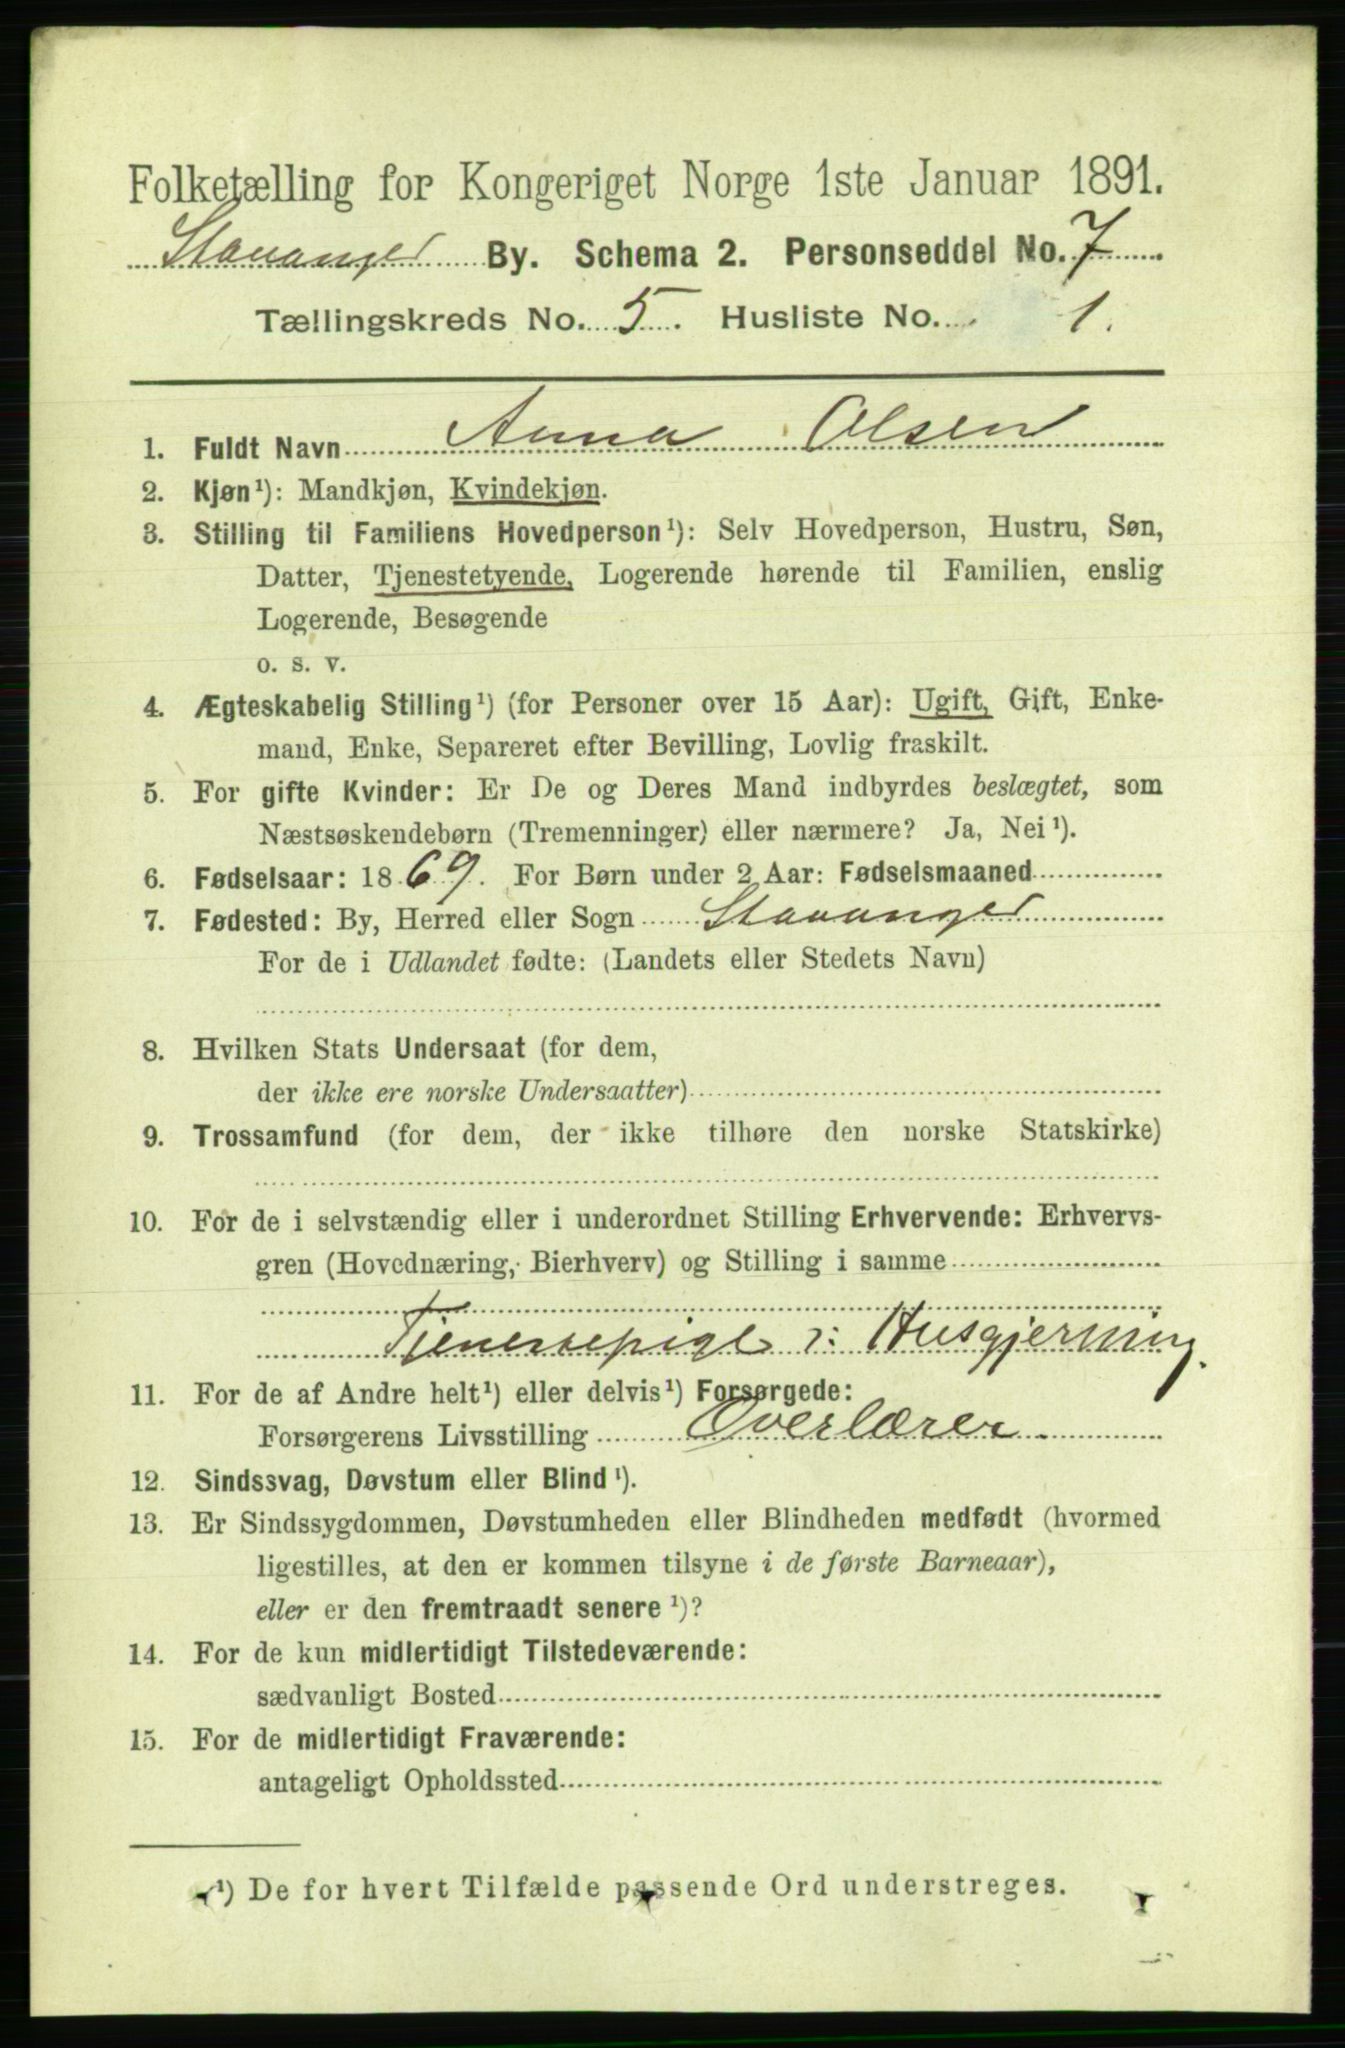 Folketælling for Kongeriget Norge 1ste Januar 1891.
Stavanger By. Schema 2. Personseddel No. 7
Tællingskreds No. 5. Husliste No. 1.
1. Fuldt Navn Anna Olsen
2. Kjøn¹): Mandkjøn, Kvindekjøn.
3. Stilling til Familiens Hovedperson¹): Selv Hovedperson, Hustru, Søn,
Datter, Tjenestetyende, Logerende hørende til Familien, enslig
Logerende, Besøgende
o. s. v.
4. Ægteskabelig Stilling¹) (for Personer over 15 Aar): Ugift, Gift, Enke-
mand, Enke, Separeret efter Bevilling, Lovlig fraskilt.
5. For gifte Kvinder: Er De og Deres Mand indbyrdes beslægtet, som
Næstsøskendebørn (Tremenninger) eller nærmere? Ja, Nei¹).
6. Fødselsaar: 1869. For Børn under 2 Aar: Fødselsmaaned
7. Fødested: By, Herred eller Sogn Stavanger
For de i Udlandet fødte: (Landets eller Stedets Navn)
8. Hvilken Stats Undersaat (for dem,
der ikke ere norske Undersaatter)
9. Trossamfund (for dem, der ikke tilhøre den norske Statskirke)
10. For de i selvstændig eller i underordnet Stilling Erhvervende: Erhvervs-
gren (Hovednæring, Bierhverv) og Stilling i samme
Tjenestepige i Husgjerning.
11. For de af Andre helt¹) eller delvis¹) Forsørgede:
Forsørgerens Livsstilling Overlærer.
12. Sindssvag, Døvstum eller Blind¹).
13. Er Sindssygdommen, Døvstumheden eller Blindheden medfødt (hvormed
ligestilles, at den er kommen tilsyne i de første Barneaar),
eller er den fremtraadt senere¹)?
14. For de kun midlertidigt Tilstedeværende:
sædvanligt Bosted
15. For de midlertidigt Fraværende:
antageligt Opholdssted
¹) De for hvert Tilfælde passende Ord understreges.